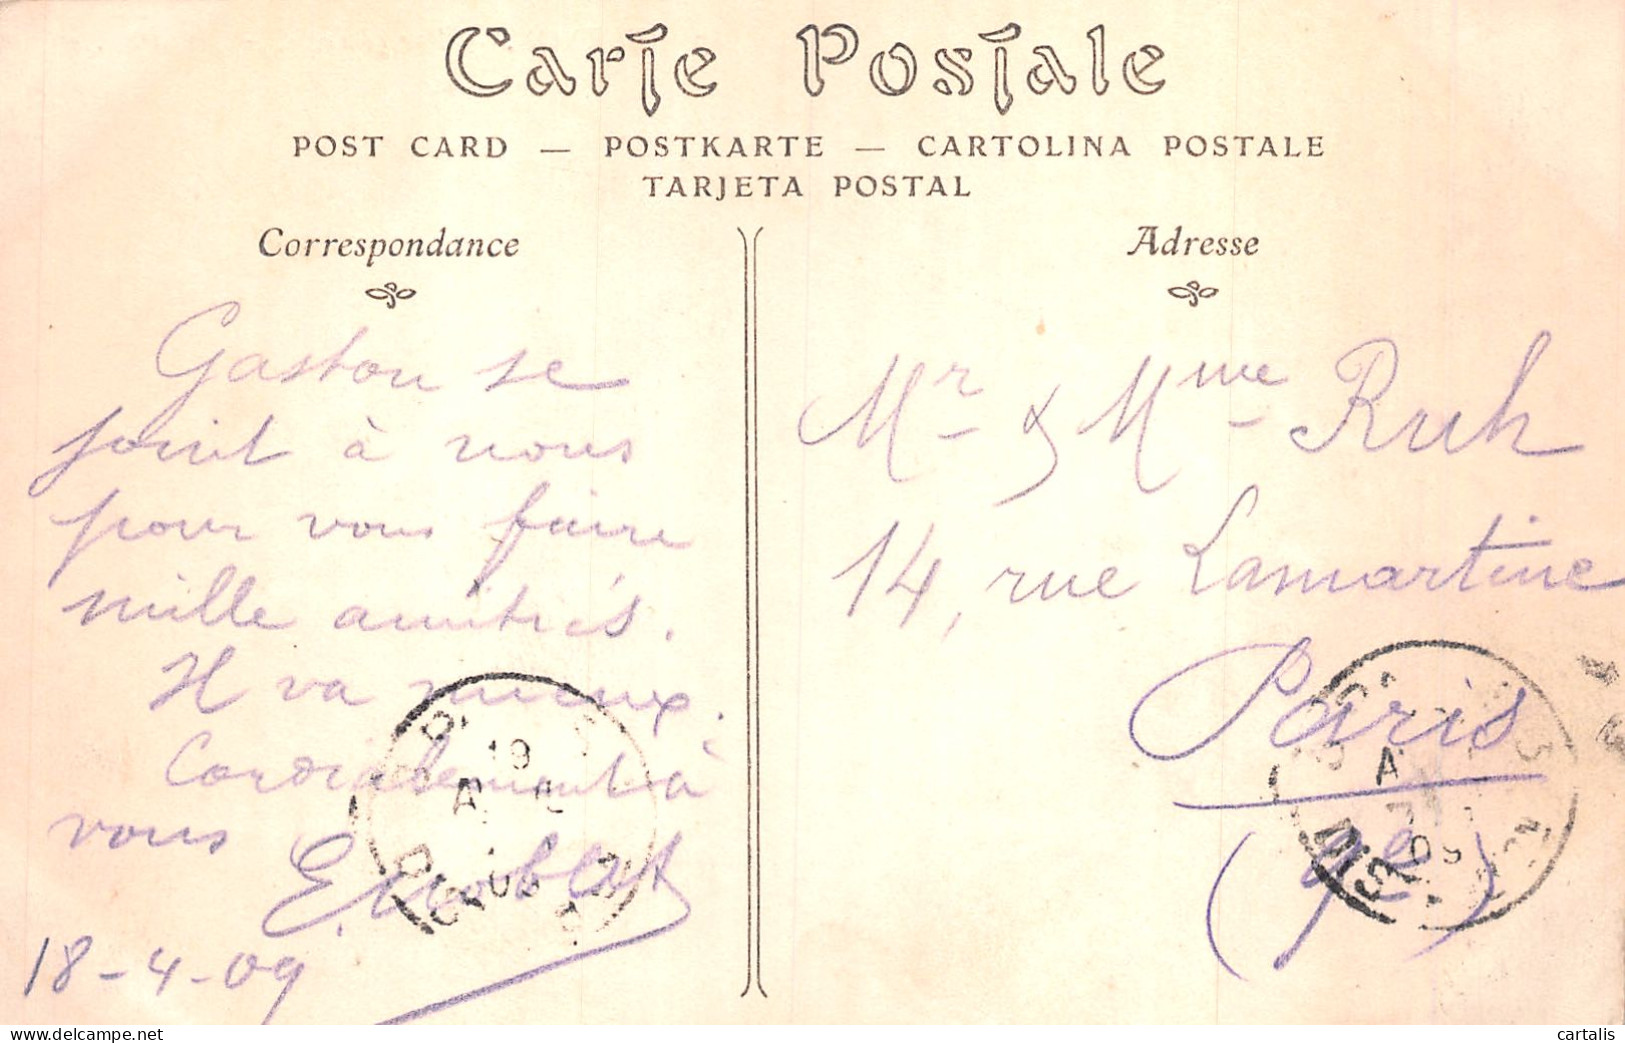 Carte Postale
POST CARD — POSTKARTE — CARTOLINA POSTALE
TARJETA POSTAL
Correspondance
Gaston se
joint à nous
pour vous faire
mille amitiés.
Il va mieux.
Cordialement à
vous
18-4-09
Adresse
Mr & Mme Ruh
14, rue Lamartine
Paris
(9e)
19
A
09
A
09
cartalis